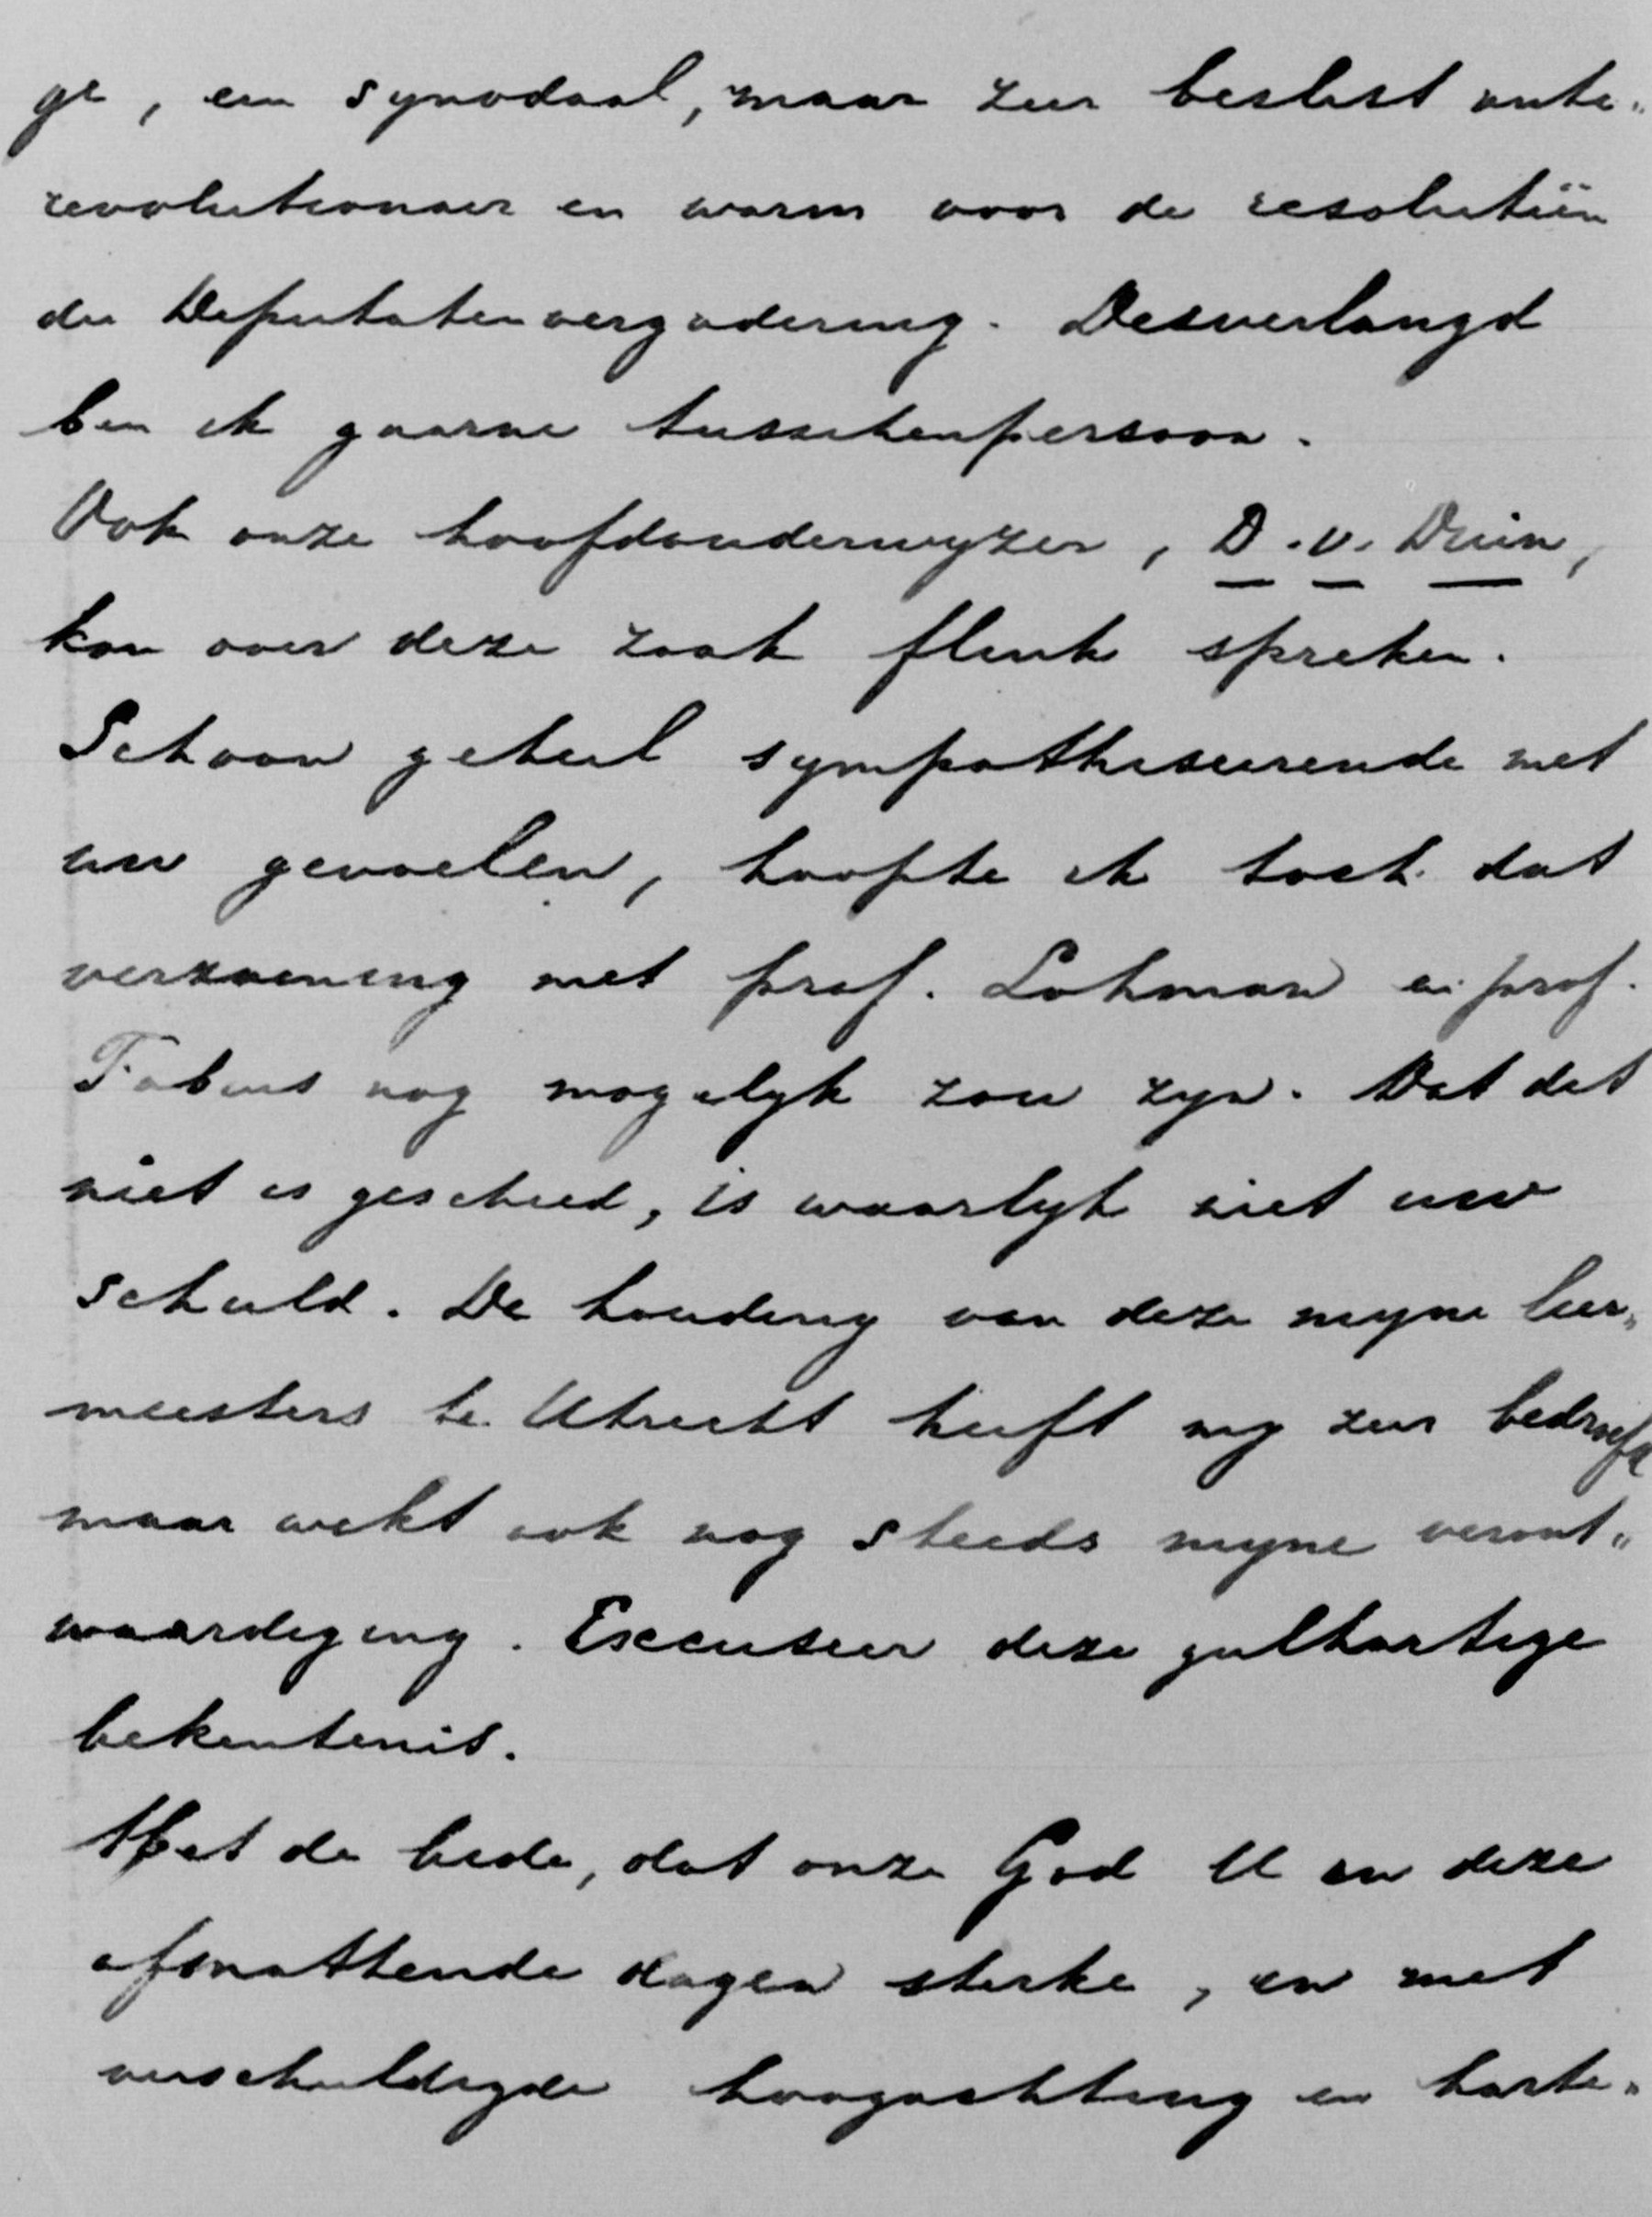 ge, een synodaal, maar zeer beslist anti„
revolutionair en warm voor de resolutiën
der Deputatenvergadering. Desverlangd
ben ik gaarne tusschenpersoon.
Ook onze hoofdonderwyzer, D. v. Druin,
kan over deze zaak flink spreken.
Schoon geheel sympathiseerende met
uw gevoelen, hoopte ik toch dat
verzoening met prof. Lohman en prof.
Fabius nog mogelyk zou zyn. Dat dit
niet is geschied, is waarlyk niet uw
schuld. De houding van deze myne leer„
meesters te Utrecht heeft my zeer bedroefd
maar wekt ook nog steeds myne veront„
waardiging. Excuseer deze gulhartige
bekentenis.
Met de bede, dat onze God U in deze
afmattende dagen sterke, en met
verschuldigde hoogachting en harte„